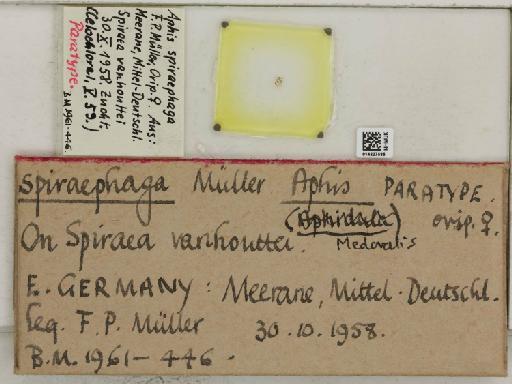 Aphis spiraephaga
F.P. Müller, Orip. ♀. Aus:
Meerane, Mittel-Deutschl.
Spiraea vanhouttei
30.X.1958. Zucht,
V.59.)
Paratype.
B.M.1961-446.
spiraephaga Müller Aphis PARATYPE.
(Aphidula) ovip. ♀.
On Spiraea vanhouttei. Medoralis
E. GERMANY: Meerane, Mittel-Deutschl.
leg. F. P. Müller 30.10.1958.
B.M. 1961-446.